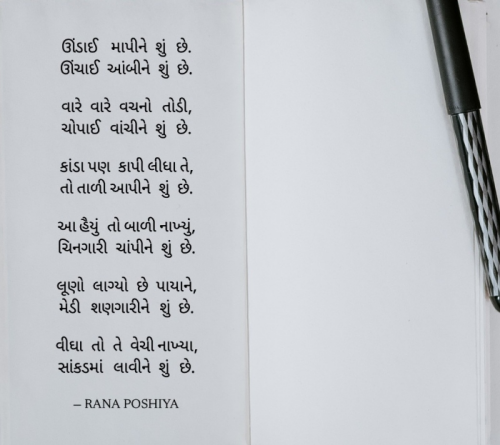 ઊંડાઈ માપીને શું છે.
ઊંચાઈ આંબીને શું છે.
વારે વારે વચનો તોડી,
ચોપાઈ વાંચીને શું છે.
કાંડા પણ કાપી લીધા તે,
તો તાળી આપીને શું છે.
આ હૈયું તો બાળી નાખ્યું,
ચિનગારી ચાંપીને શું છે.
લૂણો લાગ્યો છે પાયાને,
મેડી શણગારીને શું છે.
વીઘા તો તે વેચી નાખ્યા,
સાંકડમાં લાવીને શું છે.
– RANA POSHIYA